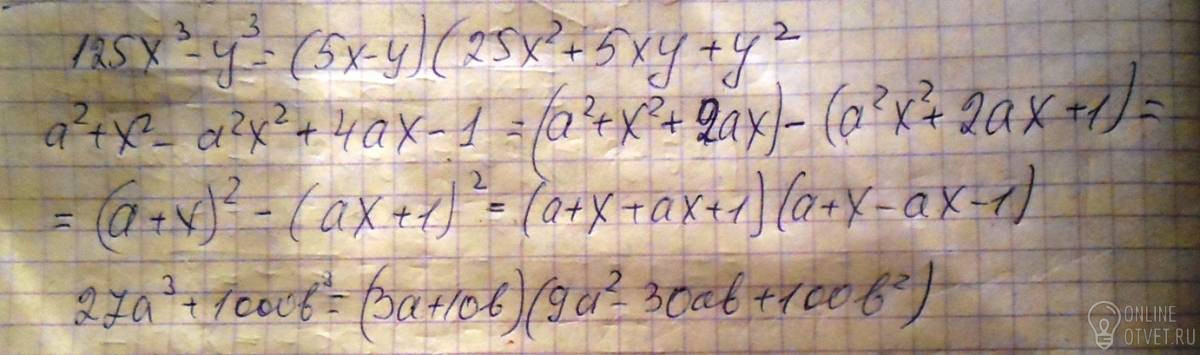 125x³-y³=(5x-y)(25x²+5xy+y²
a²+x²-a²x²+4ax-1=(a²+x²+2ax)-(a²x²+2ax+1)=
=(a+x)²-(ax+1)²=(a+x+ax+1)(a+x-ax-1)
27a³+1000b³=(3a+10b)(9a²-30ab+100b²)
ONLINE
OTVET.RU